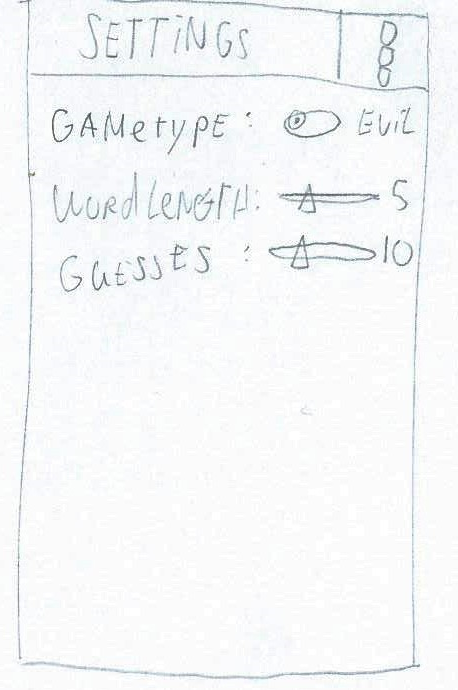 SETTiNGS
GAMetYPE : EviL
WORdLENGTH: 5
GuESSES : 10